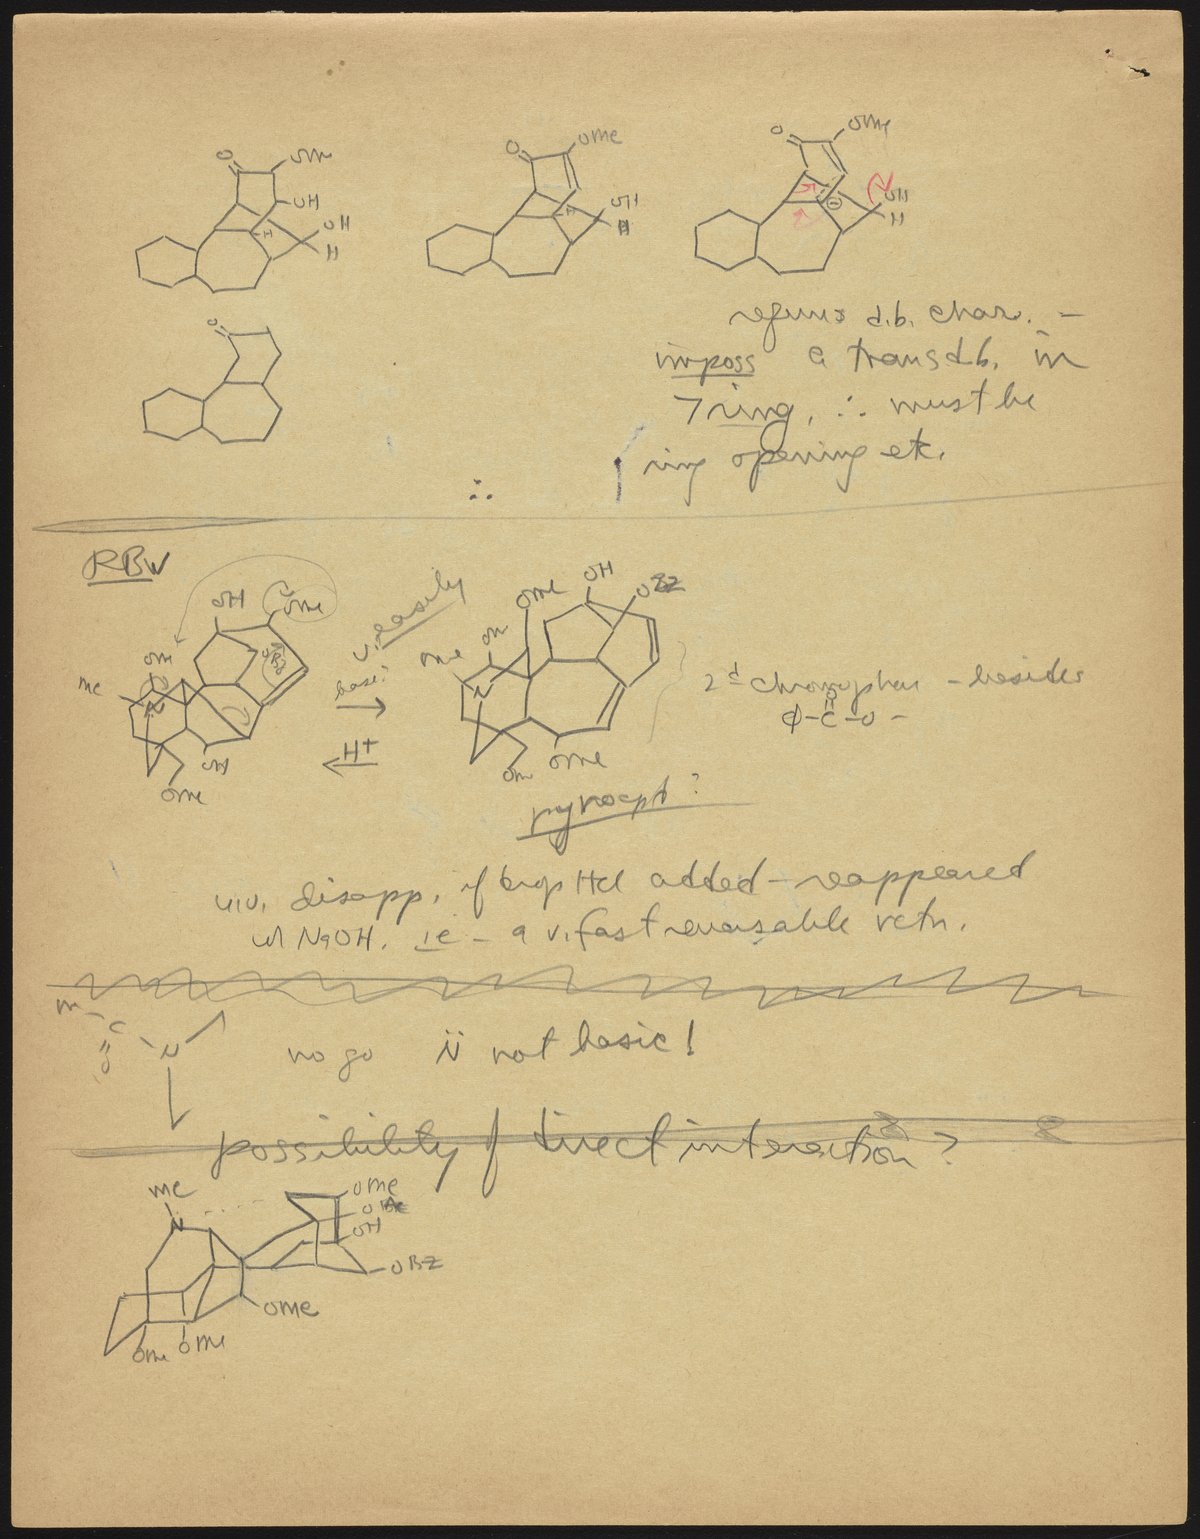 O OMe
OH
OH
H
H
O OMe
OH
H
H
O OMe
OH
H
⊖
O
d.b. char. –
imposs a trans d.b. in
7 ring, ∴ must be
ring opening etc.
∴
RBW
OH OMe
OMe
Me
N
OBz
OH
OMe
v. easily
base?
H+
OH
OMe OBz
OMe
OMe
N
OMe OMe
pyrocpt?
2d chromophor – besides
O
φ–C–O –
u.v. disapp. if drop HCl added – reappeared
w/ NaOH. ie – a v. fast reversable rctn.
M C N
O
no go N̈ not basic!
possibility of direct interaction?
Me OMe
N OAc
OH
OBZ
OMe
OMe OMe